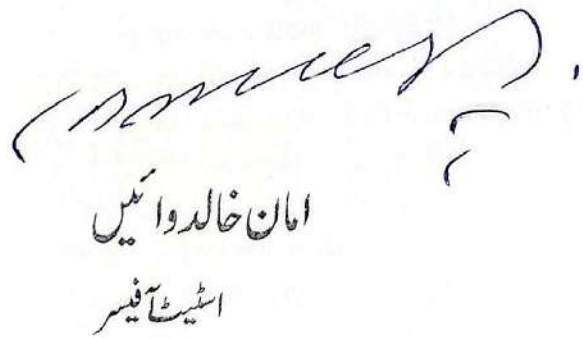 امان خالد وائیں
اسٹیٹ آفیسر